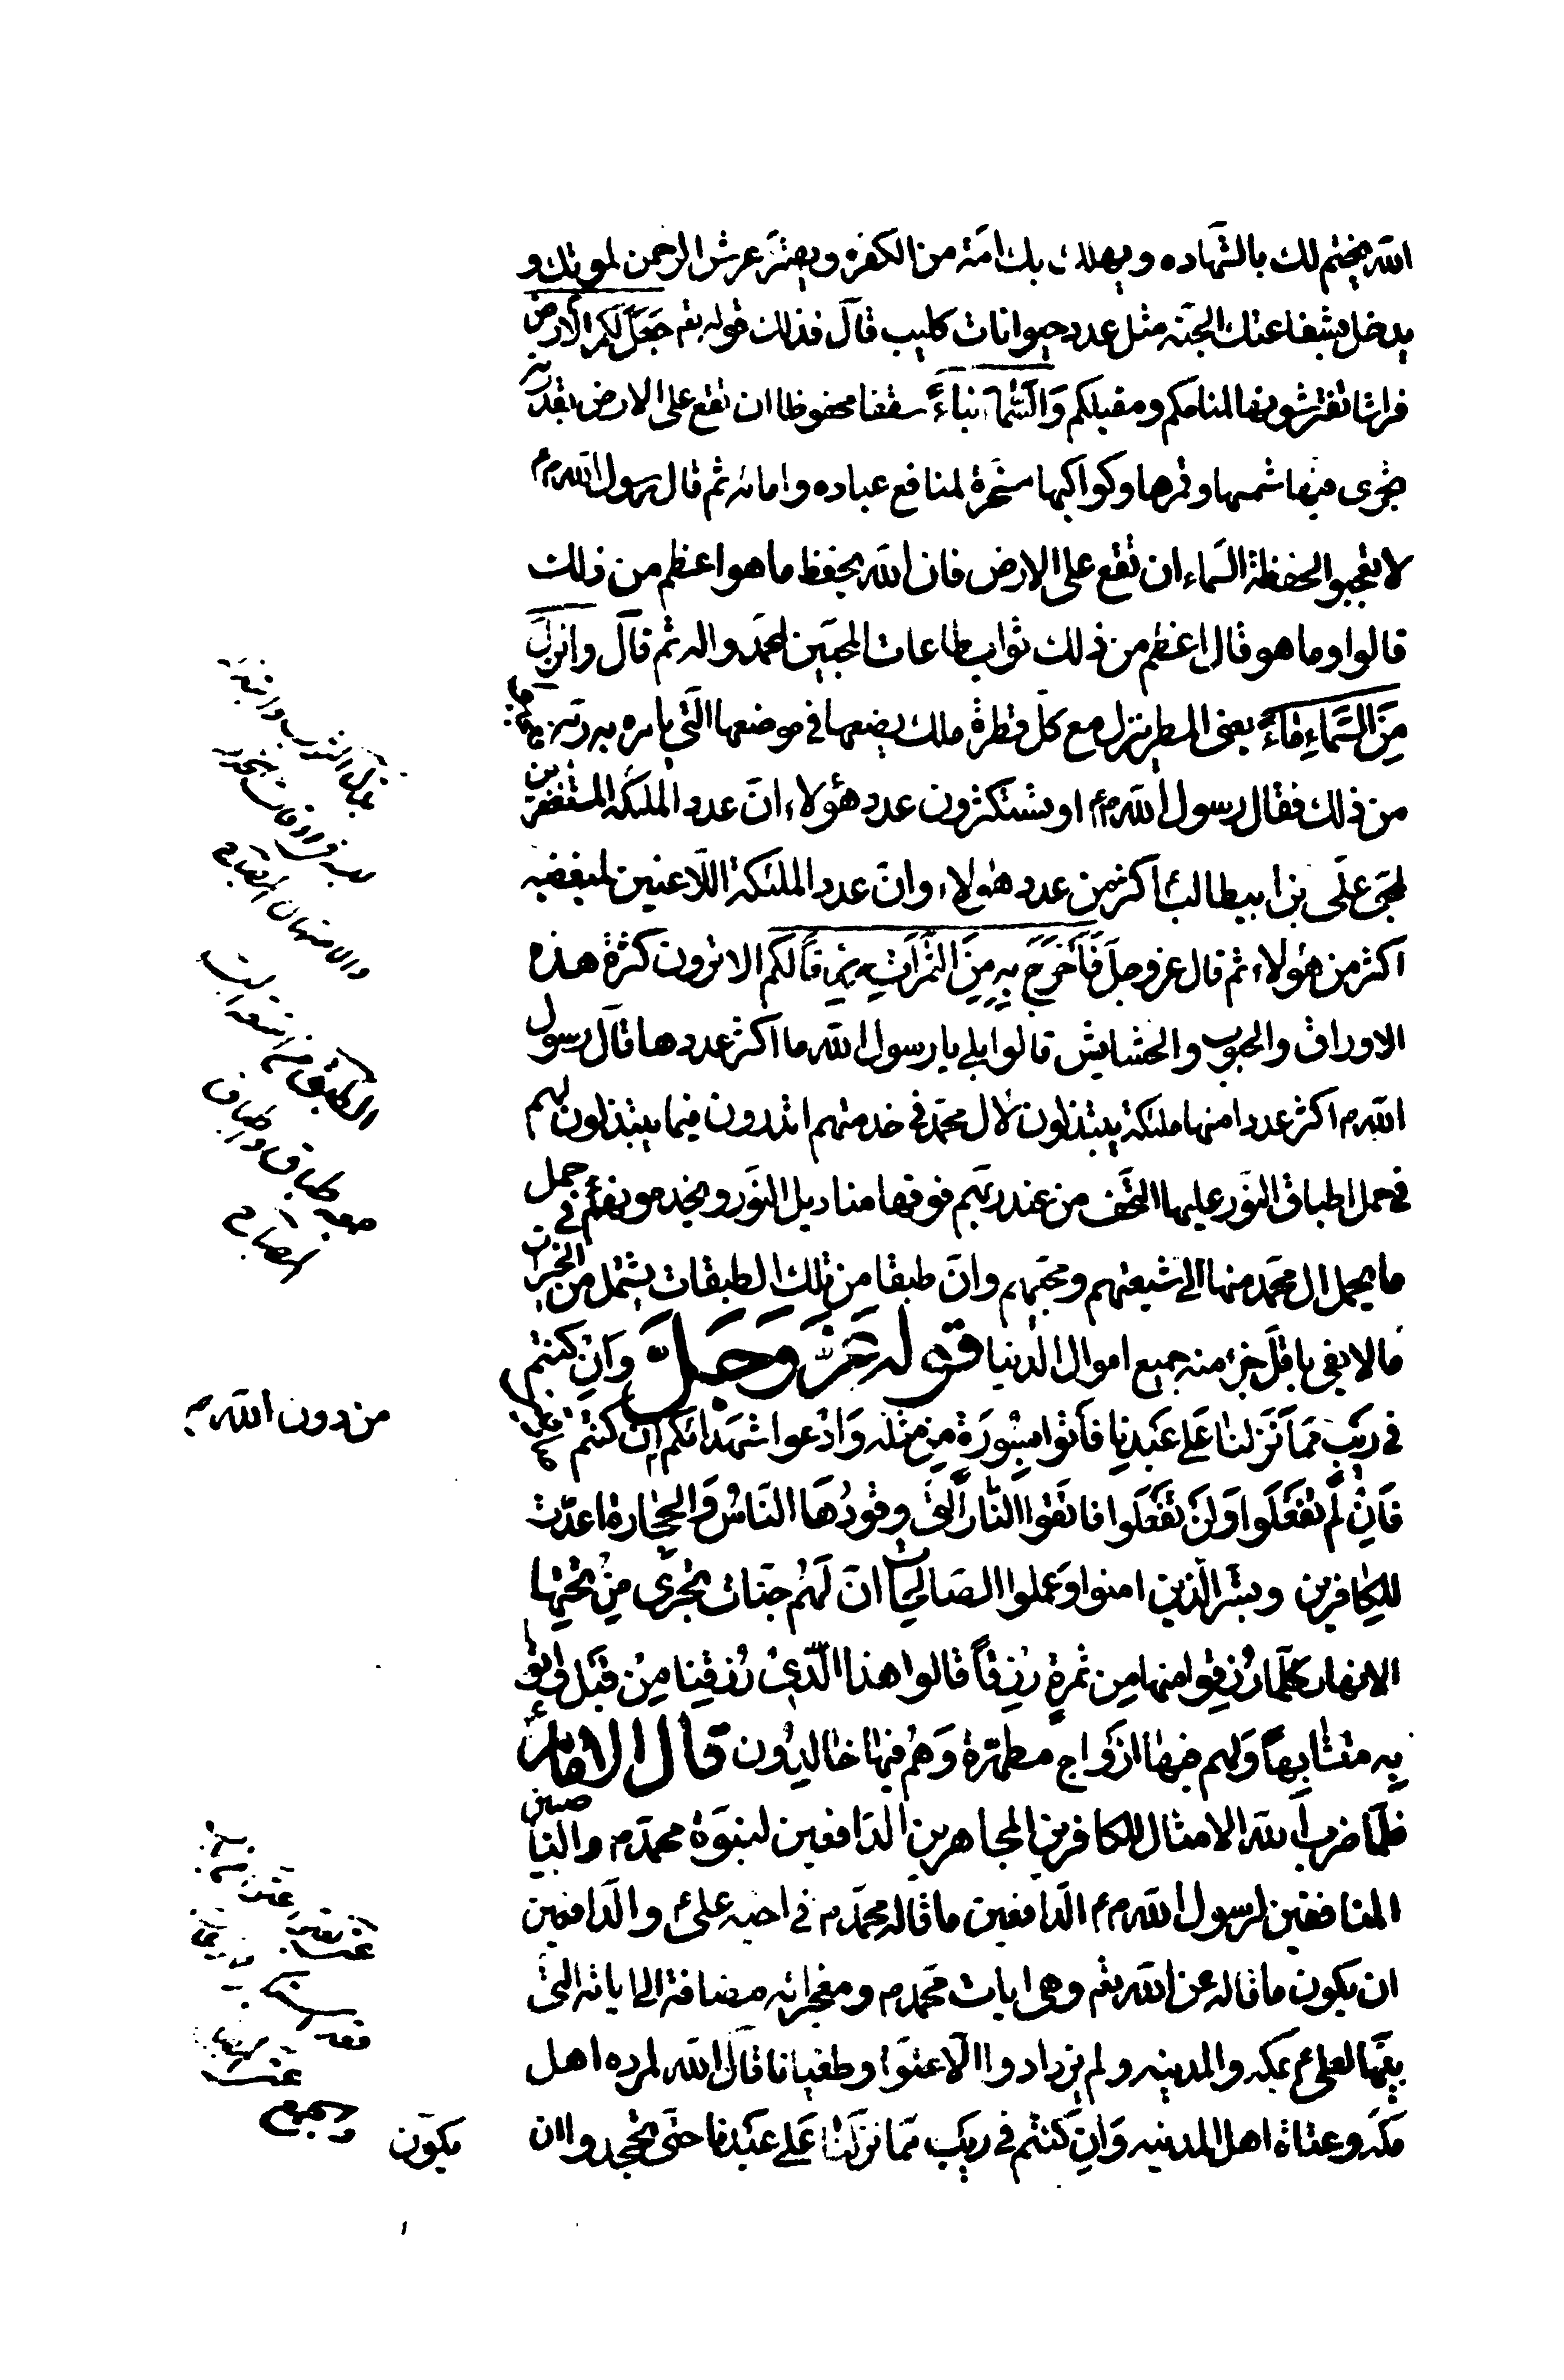 الله يختم لك بالشهاده ويهلك بك امة من الكفره ويهتز عرش الرحمن لموتك و
يدخل بشفاعتك الجنه مثل عدد حيوانات كليب قال فذلك قوله تعم جعل لكم الارض
فراشا تفترشونها لمنامكم ومقيلكم والسماء بناء سقفا محفوظا ان تقع على الارض بقدرته
تجرى فيها شمسها وقمرها وكواكبها مسخرة لمنافع عباده وامائه ثم قال رسول الله م
لا تعجبوا لحفظة السماء ان تقع على الارض فان الله يحفظ ما هو اعظم من ذلك
قالوا وما هو قال اعظم من ذلك ثواب طاعات المحبين لمحمد واله ثم قال وانزل
من السماء ماء يعنى المطر ينزل مع كل قطرة ملك يضعها في موضعها التي يامره به ربه فعجبوا
من ذلك فقال رسول الله م اوتستكثرون عدد هؤلاء ان عدد الملئكة المستغفرين
لمحبى على بن ابيطالب اكثر من عدد هؤلاء وان عدد الملئكة اللاعنين لمبغضيه
اكثر من هؤلاء ثم قال عز وجل فاخرج به من الثمرات رزقا لكم الا ترون كثرة هذه
الاوراق والحبوب والحشايش قالوا بلى يا رسول الله ما اكثر عددها قال رسول
الله م اكثر عددا منها ملئكة يبتذلون لال محمد في خدمتهم اتدرون فيما يبتذلون لهم
في حمل اطباق النور عليها التحف من عند ربهم فوقها مناديل النور ويخدمونهم في حمل
ما يحمل ال محمد منها الى شيعتهم ومحبيهم وان طبقا من تلك الطبقات يشتمل من الخيرات
ما لا يفى باقل جزء منه جميع اموال الدنيا قوله عز وجل وان كنتم
في ريب مما نزلنا على عبدنا فأتوا بسورة من مثله وادعوا شهدائكم ان كنتم صادقين
من دون الله
فان لم تفعلوا ولن تفعلوا فاتقوا النار التي وقودها الناس والحجارة اعدت
للكافرين وبشر الذين امنوا وعملوا الصالحات ان لهم جنات تجرى من تحتها
الانهار كلما رزقوا منها من ثمرة رزقا قالوا هذا الذي رزقنا من قبل واتوا
به متشابها ولهم فيها ازواج مطهرة وهم فيها خالدون قال الامام
فلما ضرب الله الامثال للكافرين المجاهرين الدافعين لنبوة محمد م والناصبين
المنافقين لرسول الله م الدافعين ما قاله محمد م في اخيه على والدافعين
ان يكون ما قاله عن الله تعم وهى ايات محمد م ومعجزاته مضافة الى اياته التي
بينها لعلى ع بمكه والمدينه ولم يزدادوا الا عتوا وطغيانا قال الله لمرده اهل
مكه وعتاة اهل المدينه وان كنتم في ريب مما نزلنا على عبدنا حتى تجحدوا ان
يكون